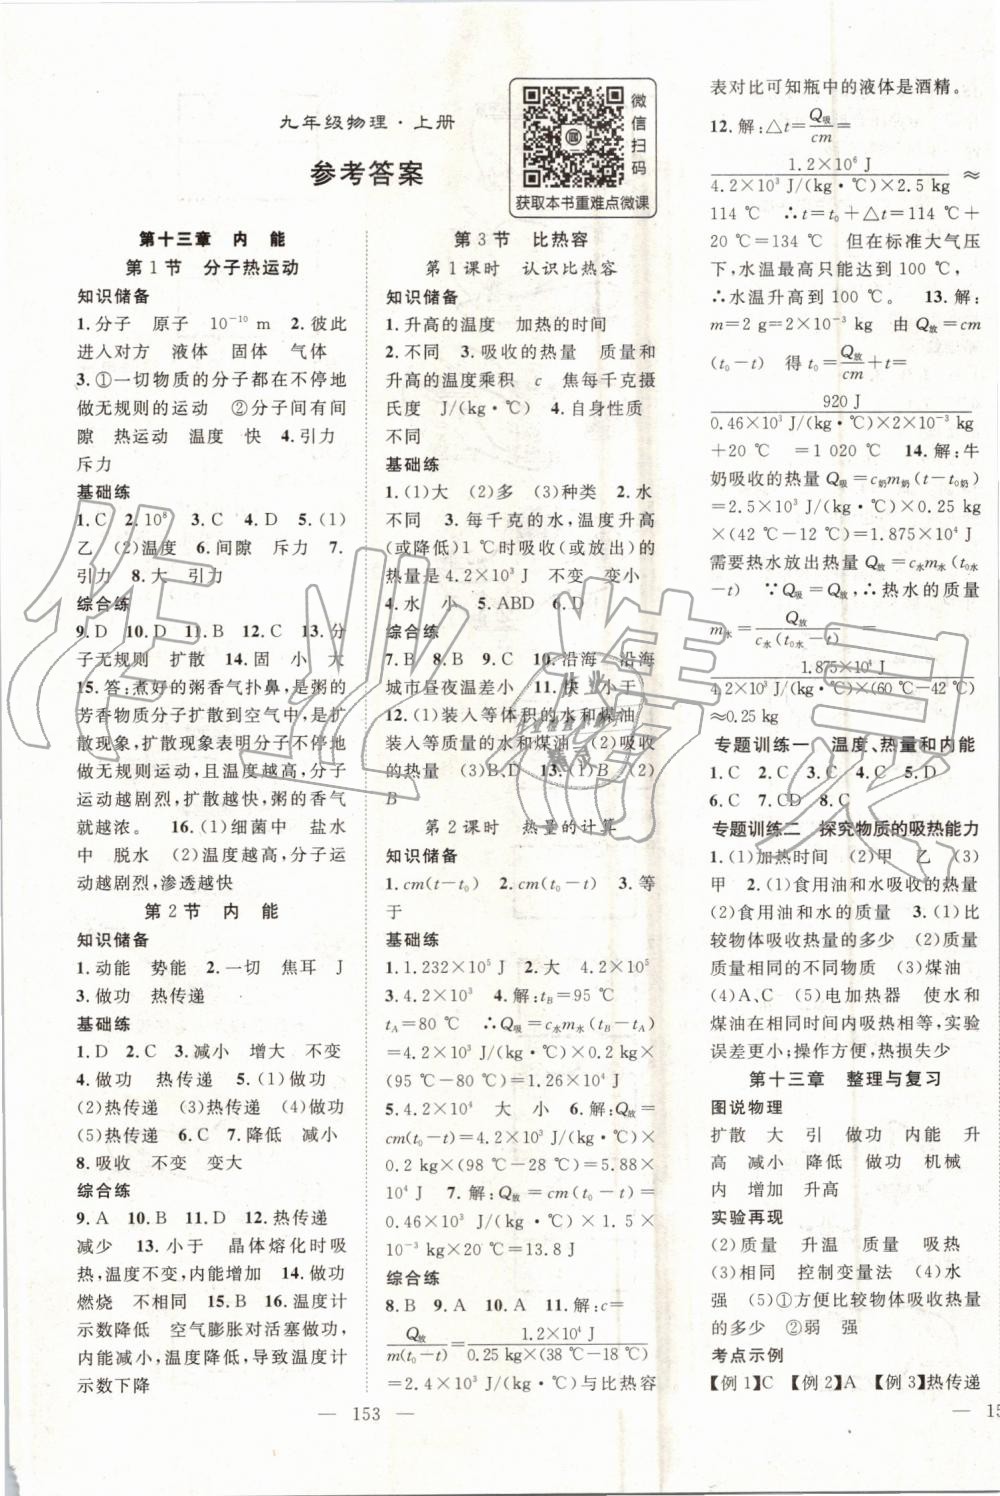 九年级物理·上册
参考答案
微信扫码
获取本书重难点微课
第十三章 内 能
第1节 分子热运动
知识储备
1.分子 原子 10⁻¹⁰ m 2.彼此
进入对方 液体 固体 气体
3.①一切物质的分子都在不停地
做无规则的运动 ②分子间有间
隙 热运动 温度 快 4.引力
斥力
基础练
1.C 2.10⁸ 3.C 4.D 5.(1)
乙 (2)温度 6.间隙 斥力 7.
引力 8.大 引力
综合练
9.D 10.D 11.B 12.C 13.分
子无规则 扩散 14.固 小 大
15.答:煮好的粥香气扑鼻,是粥的
芳香物质分子扩散到空气中,是扩
散现象,扩散现象表明分子在不停
地运动,且温度越高,分子
运动越剧烈,扩散越快,粥的香气
就越浓。 16.(1)细菌中 盐水
中 脱水 (2)温度越高,分子运
动越剧烈,渗透越快
第2节 内 能
知识储备
1.动能 势能 2.一切 焦耳 J
3.做功 热传递
基础练
1.D 2.C 3.减小 增大 不变
4.做功 热传递 5.(1)做功
(2)热传递 (3)热传递 (4)做功
(5)热传递 6.C 7.降低 减小
8.吸收 不变 变大
综合练
9.A 10.B 11.D 12.热传递
减少 13.小于 晶体熔化时吸
热,温度不变,内能增加 14.做功
燃烧 不相同 15.B 16.温度计
示数降低 空气膨胀对活塞做功,
内能减小,温度降低,导致温度计
示数下降
第3节 比热容
第1课时 认识比热容
知识储备
1.升高的温度 加热的时间
2.不同 3.吸收的热量 质量和
升高的温度乘积 c 焦每千克摄
氏度 J/(kg·℃) 4.自身性质
不同
基础练
1.(1)大 (2)多 (3)种类 2.水
不同 3.每千克的水,温度升高
(或降低)1 ℃时吸收(或放出)的
热量是4.2×10³ J 不变 变小
4.水 小 5.ABD 6.D
综合练
7.B 8.B 9.C 10.沿海 沿海
城市昼夜温差小 11.快 小于
12.(1)装入等体积的水和煤油
装入等质量的水和煤油 (2)吸收
的热量 (3)B、D 13.(1)B (2)
B
第2课时 热量的计算
知识储备
1.cm(t-t₀) 2.cm(t₀-t) 3.等
于
基础练
1.1.232×10⁵ J 2.大 4.2×10⁵
3.4.2×10³ 4.解:t_B=95 ℃
t_A=80 ℃ ∴Q吸=c水m水(t_B-t_A)
=4.2×10³ J/(kg·℃)×0.2 kg×
(95 ℃-80 ℃)=1.26×10⁴ J
5.4.2×10⁴ 大 小 6.解:Q放=
cm(t₀-t)=4.2×10³ J/(kg·℃)×
0.2 kg×(98 ℃-28 ℃)=5.88×
10⁴ J 7.解:Q放=cm(t₀-t)=
0.46×10³ J/(kg·℃)×1.5×
10⁻³ kg×20 ℃=13.8 J
综合练
8.B 9.A 10.A 11.解:c=
Q放/m(t₀-t)=1.2×10⁴ J/0.25 kg×(38 ℃-18 ℃)
=2.4×10³ J/(kg·℃)与比热容
表对比可知瓶中的液体是酒精。
12.解:△t=Q吸/cm=
1.2×10⁶ J/4.2×10³ J/(kg·℃)×2.5 kg≈
114 ℃ ∴t=t₀+△t=114 ℃+
20 ℃=134 ℃ 但在标准大气压
下,水温最高只能达到100 ℃,
∴水温升高到100 ℃。 13.解:
m=2 g=2×10⁻³ kg 由Q放=cm
(t₀-t) 得t₀=Q放/cm+t=
920 J/0.46×10³ J/(kg·℃)×2×10⁻³ kg+
20 ℃=1 020 ℃ 14.解:牛
奶吸收的热量Q吸=c奶m奶(t-t₀奶)
=2.5×10³ J/(kg·℃)×0.25 kg
×(42 ℃-12 ℃)=1.875×10⁴ J
需要热水放出热量Q放=c水m水(t₀水
-t) ∵Q吸=Q放,∴热水的质量
m水=Q放/c水(t₀水-t)=
1.875×10⁴ J/4.2×10³ J/(kg·℃)×(60 ℃-42 ℃)
≈0.25 kg
专题训练一 温度、热量和内能
1.C 2.C 3.C 4.C 5.D
6.C 7.CD 8.C
专题训练二 探究物质的吸热能力
1.(1)加热时间 (2)甲 乙 (3)
甲 2.(1)食用油和水吸收的热量
(2)食用油和水的质量 3.(1)比
较物体吸收热量的多少 (2)质量
相等的不同物质 (3)煤油
(4)A、C (5)电加热器 使水和
煤油在相同时间内吸热相等,实验
误差更小;操作方便,热损失少
第十三章 整理与复习
图说物理
扩散 大 引 做功 内能 升
高 减小 降低 做功 机械
内 增加 升高
实验再现
(2)质量 升温 质量 吸热
(3)相同 控制变量法 (4)水
强 (5)①方便比较物体吸收热量
的多少 ②弱 强
考点示例
【例1】C 【例2】A 【例3】热传递
— 153 —
作业精灵